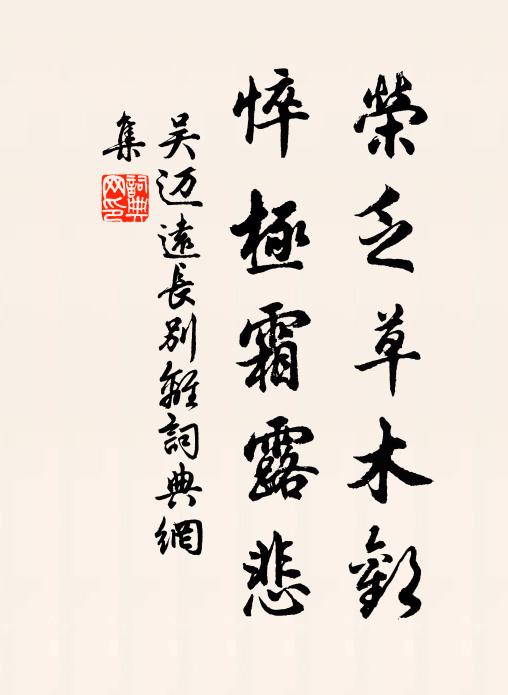 榮乏草木歡
悴極霜露悲
吳迈遠長別離詞典網
集
詞典網印